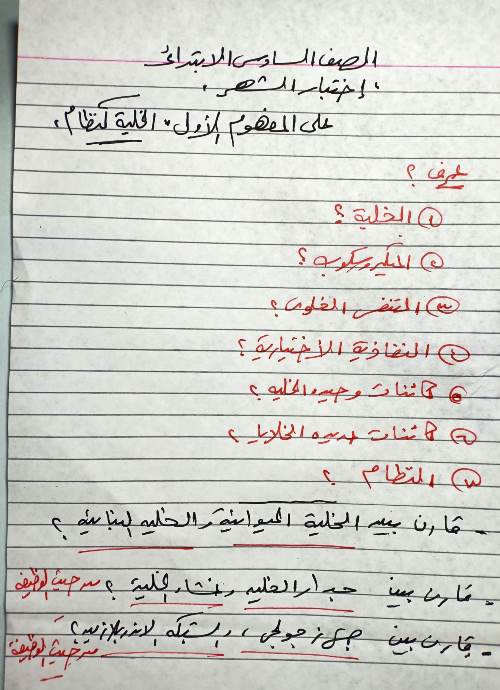 الصف السادس الابتدائى
إختبار الشهر
على المفهوم الأول " الخلية كنظام "
عرف ؟
① الخلية ؟
② الميكروسكوب ؟
③ التنفس الخلوى ؟
④ النفاذية الاختيارية ؟
⑤ كائنات وحيده الخليه ؟
⑥ كائنات عديده الخلايا ؟
⑦ النظام ؟
- قارن بين الخلية الحيوانية والخليه النباتية ؟
- قارن بين جدار الخليه وغشاء الخلية ؟ من حيث الوظيفة
- قارن بين جهاز جولجى ، والشبكه الاندوبلازميه ؟
من حيث الوظيفة